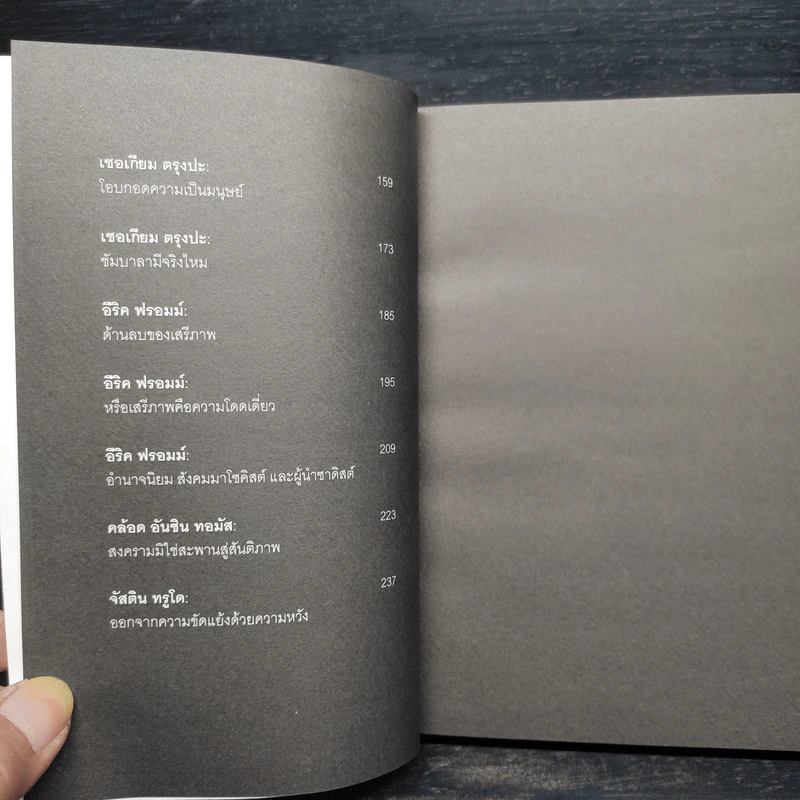 เชอเกียม ตรุงปะ:
โอบกอดความเป็นมนุษย์ 159
เชอเกียม ตรุงปะ:
ชัมบาลามีจริงไหม 173
อีริค ฟรอมม์:
ด้านลบของเสรีภาพ 185
อีริค ฟรอมม์:
หรือเสรีภาพคือความโดดเดี่ยว 195
อีริค ฟรอมม์:
อำนาจนิยม สังคมมาโซคิสต์ และผู้นำซาดิสต์ 209
คล้อด อันชิน ทอมัส:
สงครามมิใช่สะพานสู่สันติภาพ 223
จัสติน ทรูโด:
ออกจากความขัดแย้งด้วยความหวัง 237